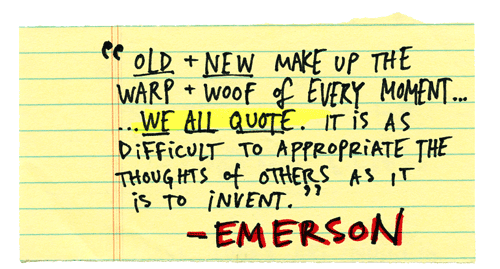 “OLD + NEW MAKE UP THE
WARP + WOOF of EVERY MOMENT...
...WE ALL QUOTE. IT IS AS
DiffiCULT TO APPROPRiATE THE
THOUGHTS of OTHERS AS iT
iS TO iNVENT.”
- EMERSON